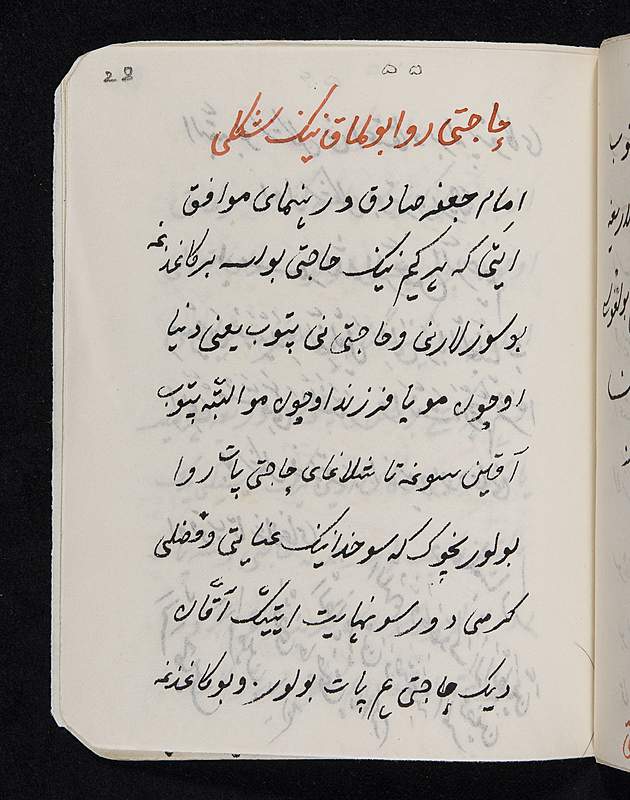 28
۵۵
حاجتی روا بولماق نینک شکلی
امام جعفر صادق و رهنمای موافق
ایتی که هر کیم نینک حاجتی بولسه بر کاغذغه
بو سوزلارنی و حاجتی نی پتوب یعنی دنیا
اوچون مو یا فرزند اوچون مو البته پتوب
آقین سوغه تاشلاغای حاجتی پات روا
بولور نچوک که سو خدانینک عنایتی و فضلی
کرمی دور سو نهایت ایتیک آقان
دیک حاجتی هم پات بولور. و بو کاغذغه